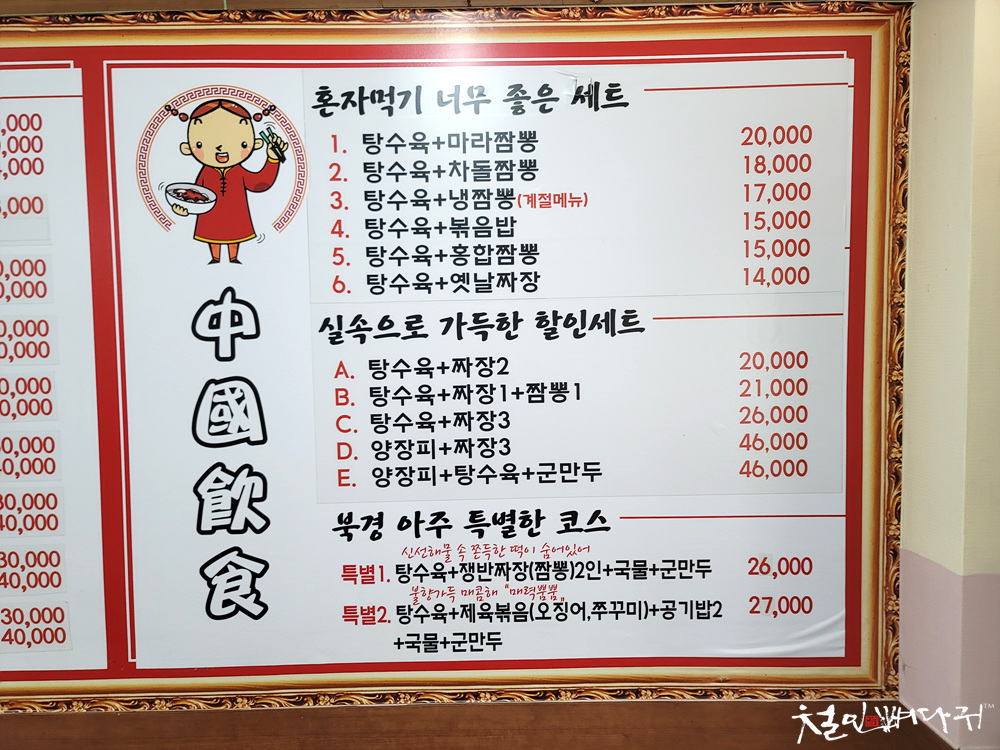 ,000
0,000
4,000
8,000
0,000
0,000
0,000
0,000
0,000
0,000
50,000
40,000
30,000
40,000
30,000
40,000
30,000
40,000
中國飮食
혼자먹기 너무 좋은 세트
1. 탕수육+마라짬뽕 20,000
2. 탕수육+차돌짬뽕 18,000
3. 탕수육+냉짬뽕(계절메뉴) 17,000
4. 탕수육+볶음밥 15,000
5. 탕수육+홍합짬뽕 15,000
6. 탕수육+옛날짜장 14,000
실속으로 가득한 할인세트
A. 탕수육+짜장2 20,000
B. 탕수육+짜장1+짬뽕1 21,000
C. 탕수육+짜장3 26,000
D. 양장피+짜장3 46,000
E. 양장피+탕수육+군만두 46,000
북경 아주 특별한 코스
신선해물 속 쫀득한 떡이 숨어있어
특별1. 탕수육+쟁반짜장(짬뽕)2인+국물+군만두 26,000
불향가득 매콤해 "매력뿜뿜"
특별2. 탕수육+제육볶음(오징어,쭈꾸미)+공기밥2 27,000
+국물+군만두